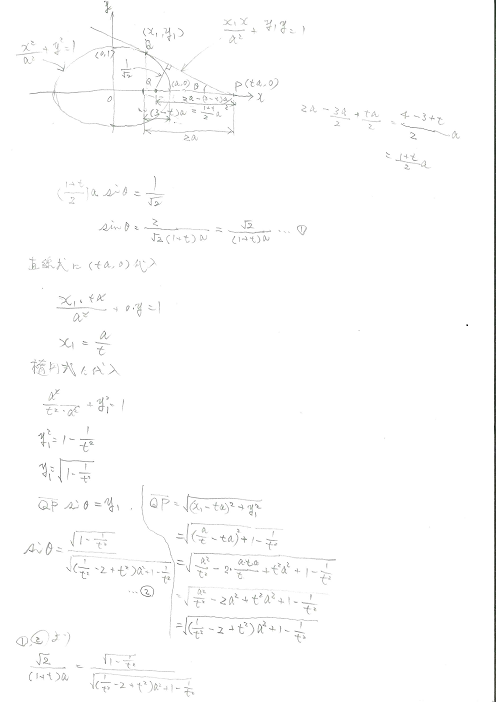 y
(x₁, y₁)
x₁x/a² + y₁y = 1
x²/a² + y² = 1
Q
(0,1)
1/√2
Q (a,0) θ P(ta,0)
0 x
(3-t)a = (1+t)/2 a
2a
2a - 3a/2 + ta/2 = (4-3+t)/2 a
= (1+t)/2 a
((1+t)/2)a sinθ = 1/√2
sinθ = 2/(√2(1+t)a) = √2/((1+t)a) … ①
直線式に(ta,0)代入
x₁·ta/a² + 0·y = 1
x₁ = a/t
楕円式に代入
a²/(t²·a²) + y₁² = 1
y₁² = 1 - 1/t²
y₁ = √(1 - 1/t²)
QP sinθ = y₁,
sinθ = √(1 - 1/t²) / √((1/t² - 2 + t²)a² + 1 - 1/t²)
… ②
QP = √((x₁ - ta)² + y₁²)
= √((a/t - ta)² + 1 - 1/t²)
= √(a²/t² - 2·a·ta/t + t²a² + 1 - 1/t²)
= √(a²/t² - 2a² + t²a² + 1 - 1/t²)
= √((1/t² - 2 + t²)a² + 1 - 1/t²)
①,②より
√2/((1+t)a) = √(1 - 1/t²) / √((1/t² - 2 + t²)a² + 1 - 1/t²)